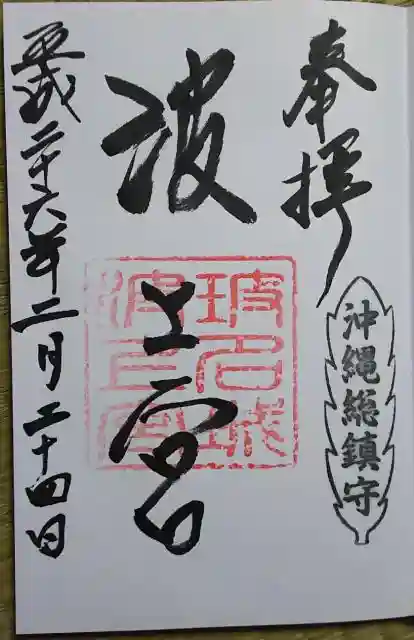 奉拝
沖縄総鎮守
波上宮
玻名城
波上宮
平成二十六年二月二十四日